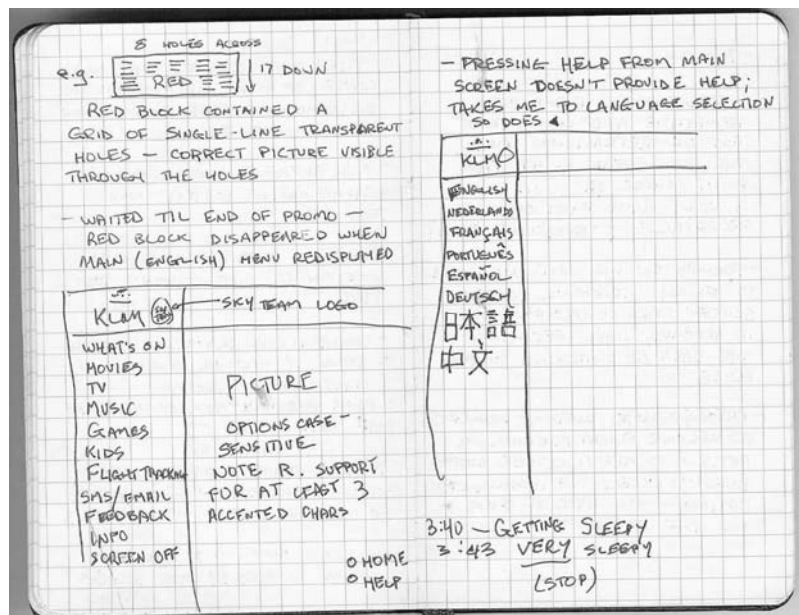 8 HOLES ACROSS
e.g.
RED
17 DOWN
RED BLOCK CONTAINED A
GRID OF SINGLE-LINE TRANSPARENT
HOLES – CORRECT PICTURE VISIBLE
THROUGH THE HOLES
– WAITED TIL END OF PROMO –
RED BLOCK DISAPPEARED WHEN
MAIN (ENGLISH) MENU REDISPLAYED
KLM
SKY TEAM LOGO
WHAT'S ON
MOVIES
TV
MUSIC
GAMES
KIDS
FLIGHT TRACKING
SMS/EMAIL
FEEDBACK
INFO
SCREEN OFF
PICTURE
OPTIONS CASE-
SENSITIVE
NOTE R. SUPPORT
FOR AT LEAST 3
ACCENTED CHARS
HOME
HELP
– PRESSING HELP FROM MAIN
SCREEN DOESN'T PROVIDE HELP;
TAKES ME TO LANGUAGE SELECTION
SO DOES
KLM
ENGLISH
NEDERLANDS
FRANÇAIS
PORTUGUÊS
ESPAÑOL
DEUTSCH
日本語
中文
3:40 – GETTING SLEEPY
3:43 VERY SLEEPY
(STOP)